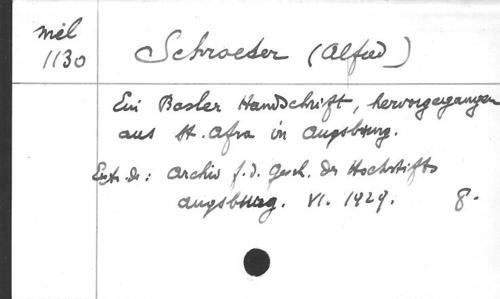 mél
1130
Schroeder (Alfred)
Ein Basler Handschrift, hervorgegangen
aus St. Afra in Augsburg.
Extr. de : Archiv f. d. Gesch. des Hochstifts
Augsburg. VI. 1929. 8.